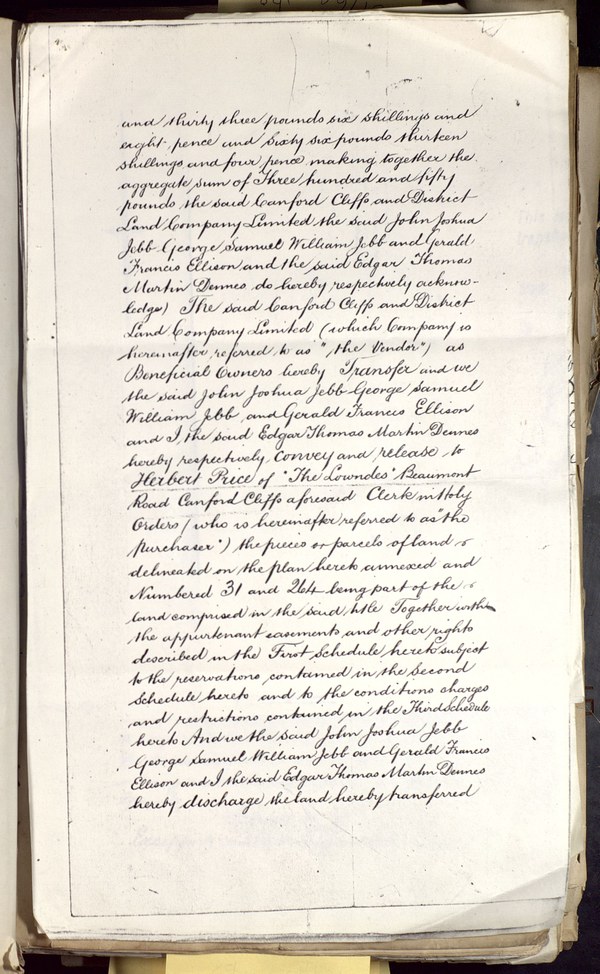 and thirty three pounds six shillings and
eight pence and Sixty six pounds thirteen
shillings and four pence making together the
aggregate sum of Three hundred and fifty
pounds the said Canford Cliffs and District
Land Company Limited the said John Joshua
Jebb George Samuel William Jebb and Gerald
Francis Ellison and the said Edgar Thomas
Martin Dennes do hereby respectively acknow-
ledge) The said Canford Cliffs and District
Land Company Limited (which Company is
hereinafter referred to as "the Vendor") as
Beneficial Owners hereby Transfer and we
the said John Joshua Jebb George Samuel
William Jebb and Gerald Francis Ellison
and I the said Edgar Thomas Martin Dennes
hereby respectively convey and release to
Herbert Price of "The Lowndes" Beaumont
Road Canford Cliffs aforesaid Clerk in Holy
Orders (who is hereinafter referred to as "the
Purchaser") the pieces or parcels of land
delineated on the plan hereto annexed and
Numbered 31 and 264 being part of the
land comprised in the said title Together with
the appurtenant easements and other rights
described in the First Schedule hereto subject
to the reservations contained in the Second
Schedule hereto and to the conditions charges
and restrictions contained in the Third Schedule
hereto And we the said John Joshua Jebb
George Samuel William Jebb and Gerald Francis
Ellison and I the said Edgar Thomas Martin Dennes
hereby discharge the land hereby transferred